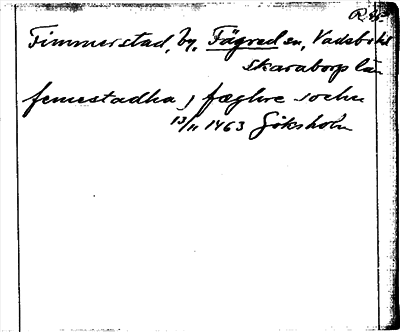 Timmerstad, by, Fägred sn, Vadsbo hd
Skaraborgs län
femestadha j fæglire sochn
13/11 1463 Göksholm